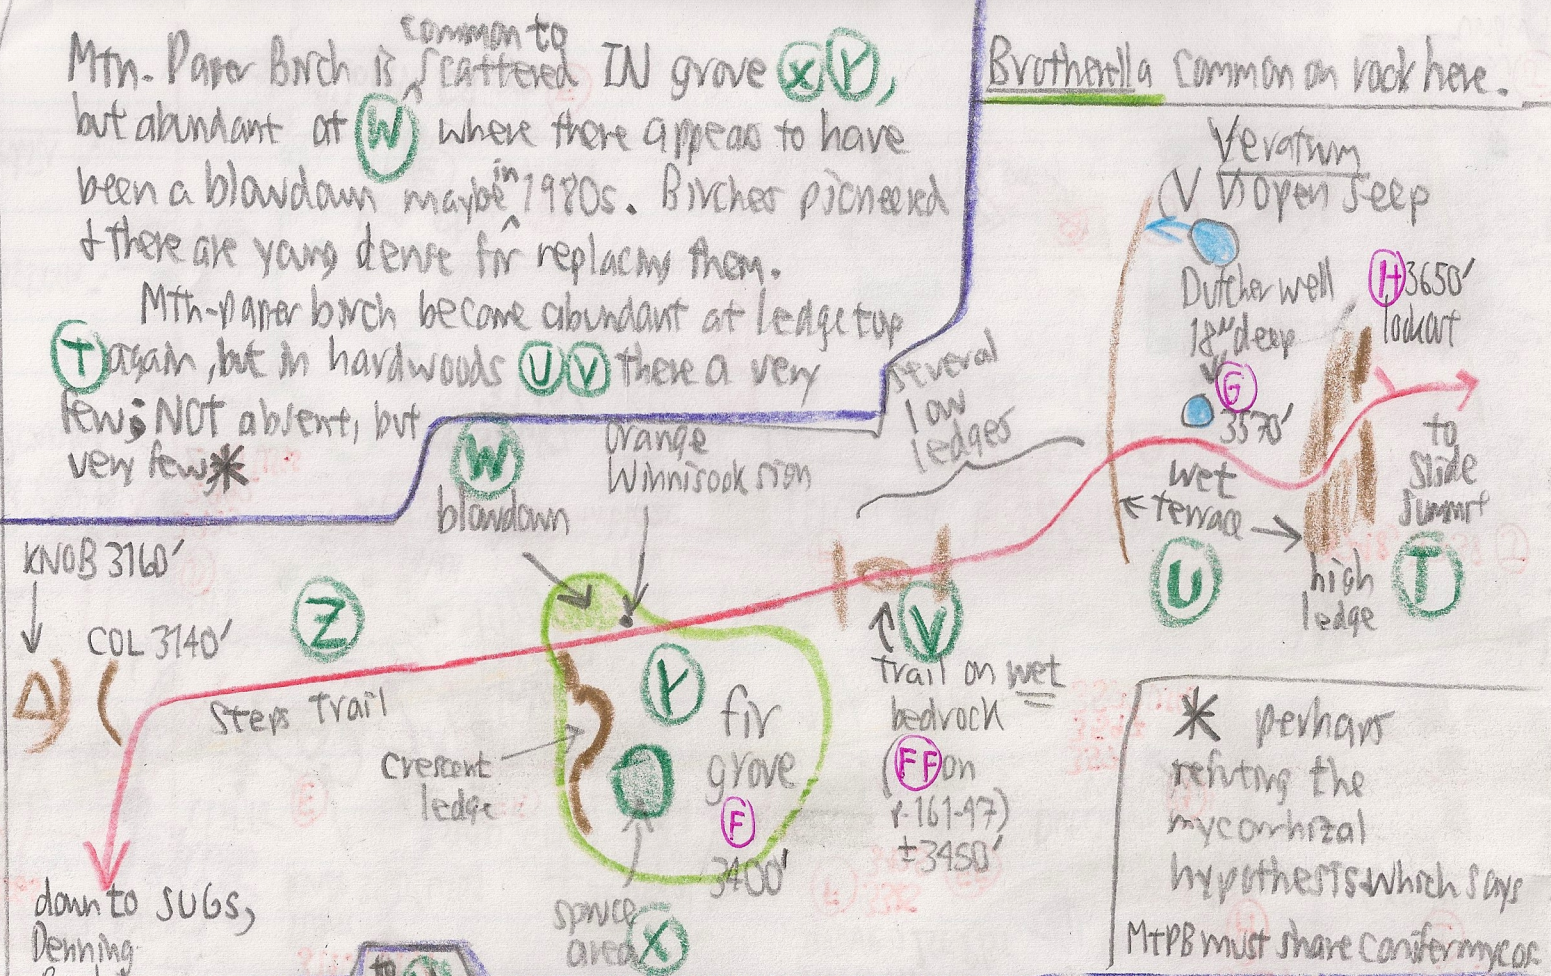 Mtn. Paper Birch is common to scattered IN grove X Y,
but abundant at W where there appears to have
been a blowdown maybe in 1980s. Birches pioneered
& there are young dense fir replacing them.
Mtn-paper birch become abundant at ledge top
T again, but in hardwoods U V there a very
few; NOT absent, but
very few *
Brotherella common on rock here.
Veratrum
(V in open seep
Dutcher well
18" deep
G
3570'
H 3650'
lookout
several
low
ledges
to
Slide
summit
wet
terrace
U
high
ledge
T
W
blowdown
orange
Winnisook sign
KNOB 3160'
COL 3140'
Z
Steps Trail
crescent
ledge
Y
fir
grove
F
3400'
spruce
area X
V
trail on wet
bedrock
(FF on
r-161-47)
±3450'
down to SUGS,
Denning
to
* perhaps
refuting the
mycorrhizal
hypothesis which says
MtPB must share conifer mycor